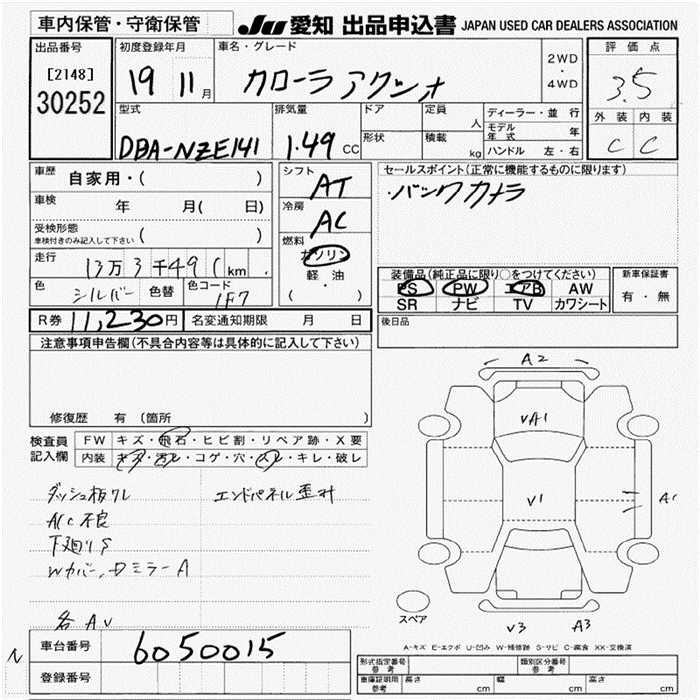 車内保管・守衛保管 JU 愛知 出品申込書 JAPAN USED CAR DEALERS ASSOCIATION
出品番号
[2148]
30252
初度登録年月
19 11月
車名・グレード
カローラ アクシオ
2WD
・
4WD
評価点
3.5
外装 内装
C C
型式
DBA-NZE141
排気量
1.49 CC
ドア
形状
定員 人
積載 kg
ディーラー・並行
モデル年式 年
ハンドル 左・右
車歴 自家用・( )
車検 年 月( 日)
受検形態
車検付きのみ記入して下さい ( )
走行 13万3千49( km
色 シルバー 色替 色コード 1F7
シフト AT
冷房 AC
燃料 ガソリン
軽油
( ・ )
セールスポイント(正常に機能するものに限ります)
・バックカメラ
装備品(純正品に限り○をつけてください)
PS PW エアB AW
SR ナビ TV カワシート
新車保証書
有・無
R券 11,230円 名変通知期限 月 日
後日品
注意事項申告欄(不具合内容等は具体的に記入して下さい)
修復歴 有(箇所 )
検査員記入欄
FW キズ・飛石・ヒビ割・リペア跡・X要
内装 キズ・汚レ・コゲ・穴・スレ・キレ・破レ
ダッシュ板ワレ エンドパネル歪ミ
A/C不良
下廻りS
Wカバー、Dミラー A
各AU
A2
VA1
V1
A1
V3 A3
スペア
A-キズ E-エクボ U-凹み W-補修跡 S-サビ C-腐食 XX-交換済
車台番号 6050015
登録番号
型式指定番号
参考
類別区分番号
参考
車庫証明用
参考
長さ cm 幅 cm 高さ cm